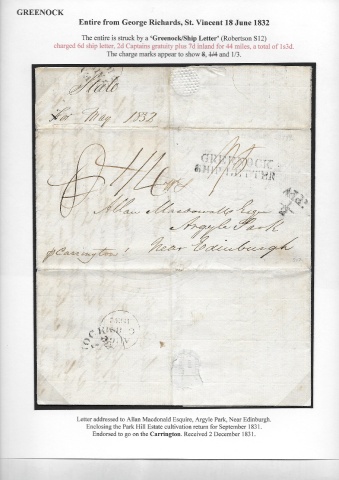 GREENOCK
Entire from George Richards, St. Vincent 18 June 1832
The entire is struck by a 'Greenock/Ship Letter' (Robertson S12)
charged 6d ship letter, 2d Captains gratuity plus 7d inland for 44 miles, a total of 1s3d.
The charge marks appear to show 8, 1/4 and 1/3.
State
for May 1832
8 1/4
GREENOCK
SHIP LETTER
Allan Macdowall Esqr
Argyle Park
Near Edinburgh
p Carrington
Letter addressed to Allan Macdonald Esquire, Argyle Park, Near Edinburgh.
Enclosing the Park Hill Estate cultivation return for September 1831.
Endorsed to go on the Carrington. Received 2 December 1831.